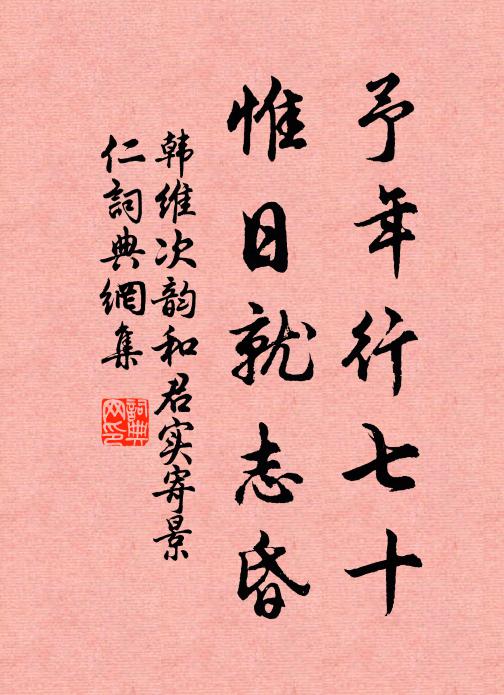 予年行七十
惟日就志昏
韩维次韵和君实寄景
仁詞典網集
詞典
网印